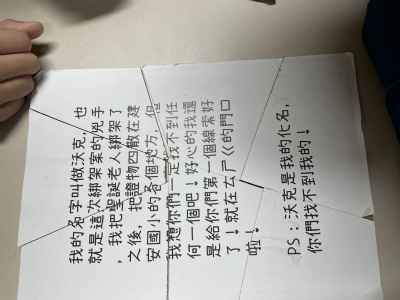 我的名字叫做沃克，也
就是這次綁架案的兇手
，我把聖誕老人綁架了
之後，把證物四散在建
安國小的各個地方，但
我想你們一定找不到任
何一個吧！好心的我還
是給你們第一個線索好
了！就在ㄊㄕㄍ的門口
啦！
PS：沃克是我的化名，
你們找不到我的！